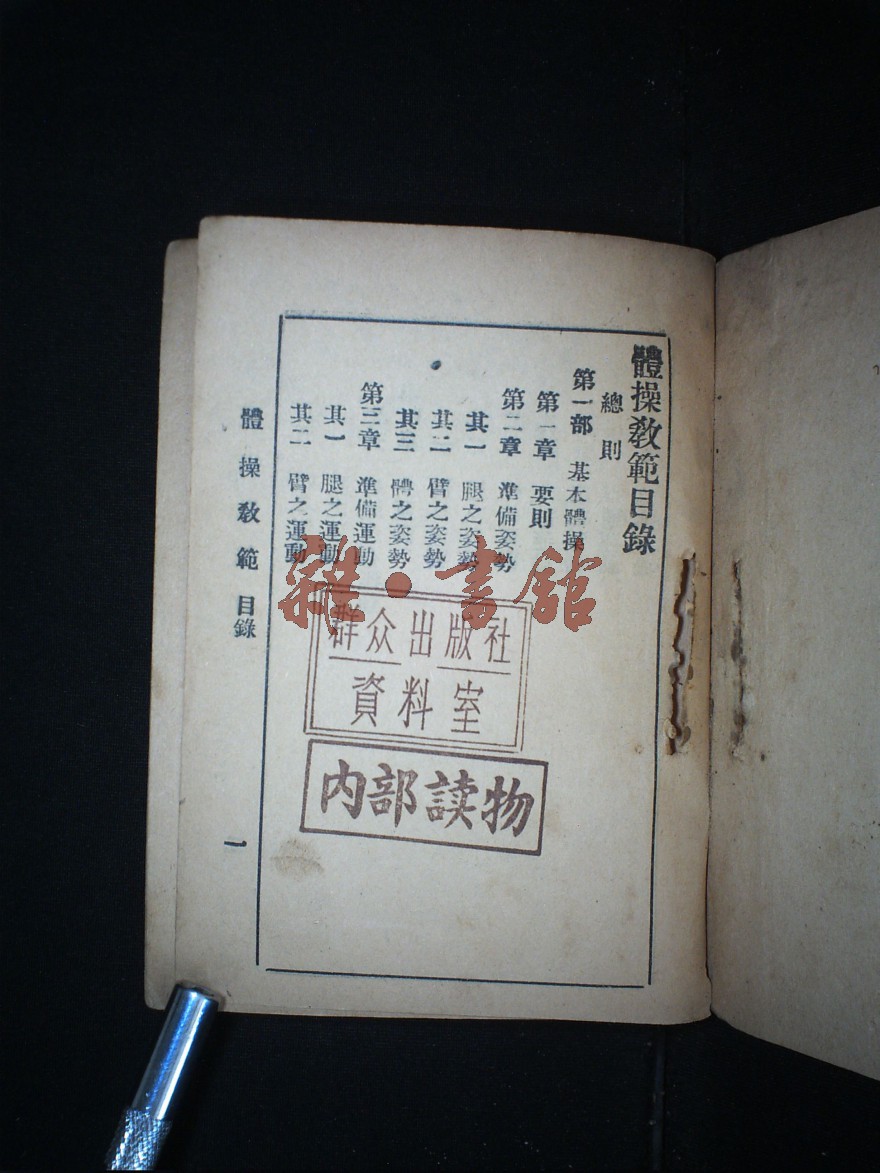 體操教範目錄
總則
第一部 基本體操
第一章 要則
第二章 準備姿勢
其一 腿之姿勢
其二 臂之姿勢
其三 體之姿勢
第三章 準備運動
其一 腿之運動
其二 臂之運動
體操教範 目錄
一
雜·書館
群众出版社
資料室
内部读物